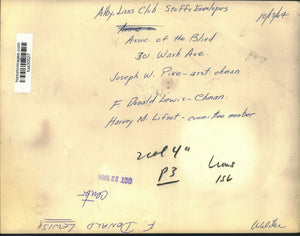 Alby. Lions Club Stuffs Envelopes
10/13/64
Assoc. of the Blind
301 Wash Ave.
Joseph W. Pike - asst. chman
F. Donald Lewis - Chman.
Harvey M. Lifset - committee member
2 col 4"
P3
Lions
156
OCT 22 1964
F. DONALD LEWIS
Walker